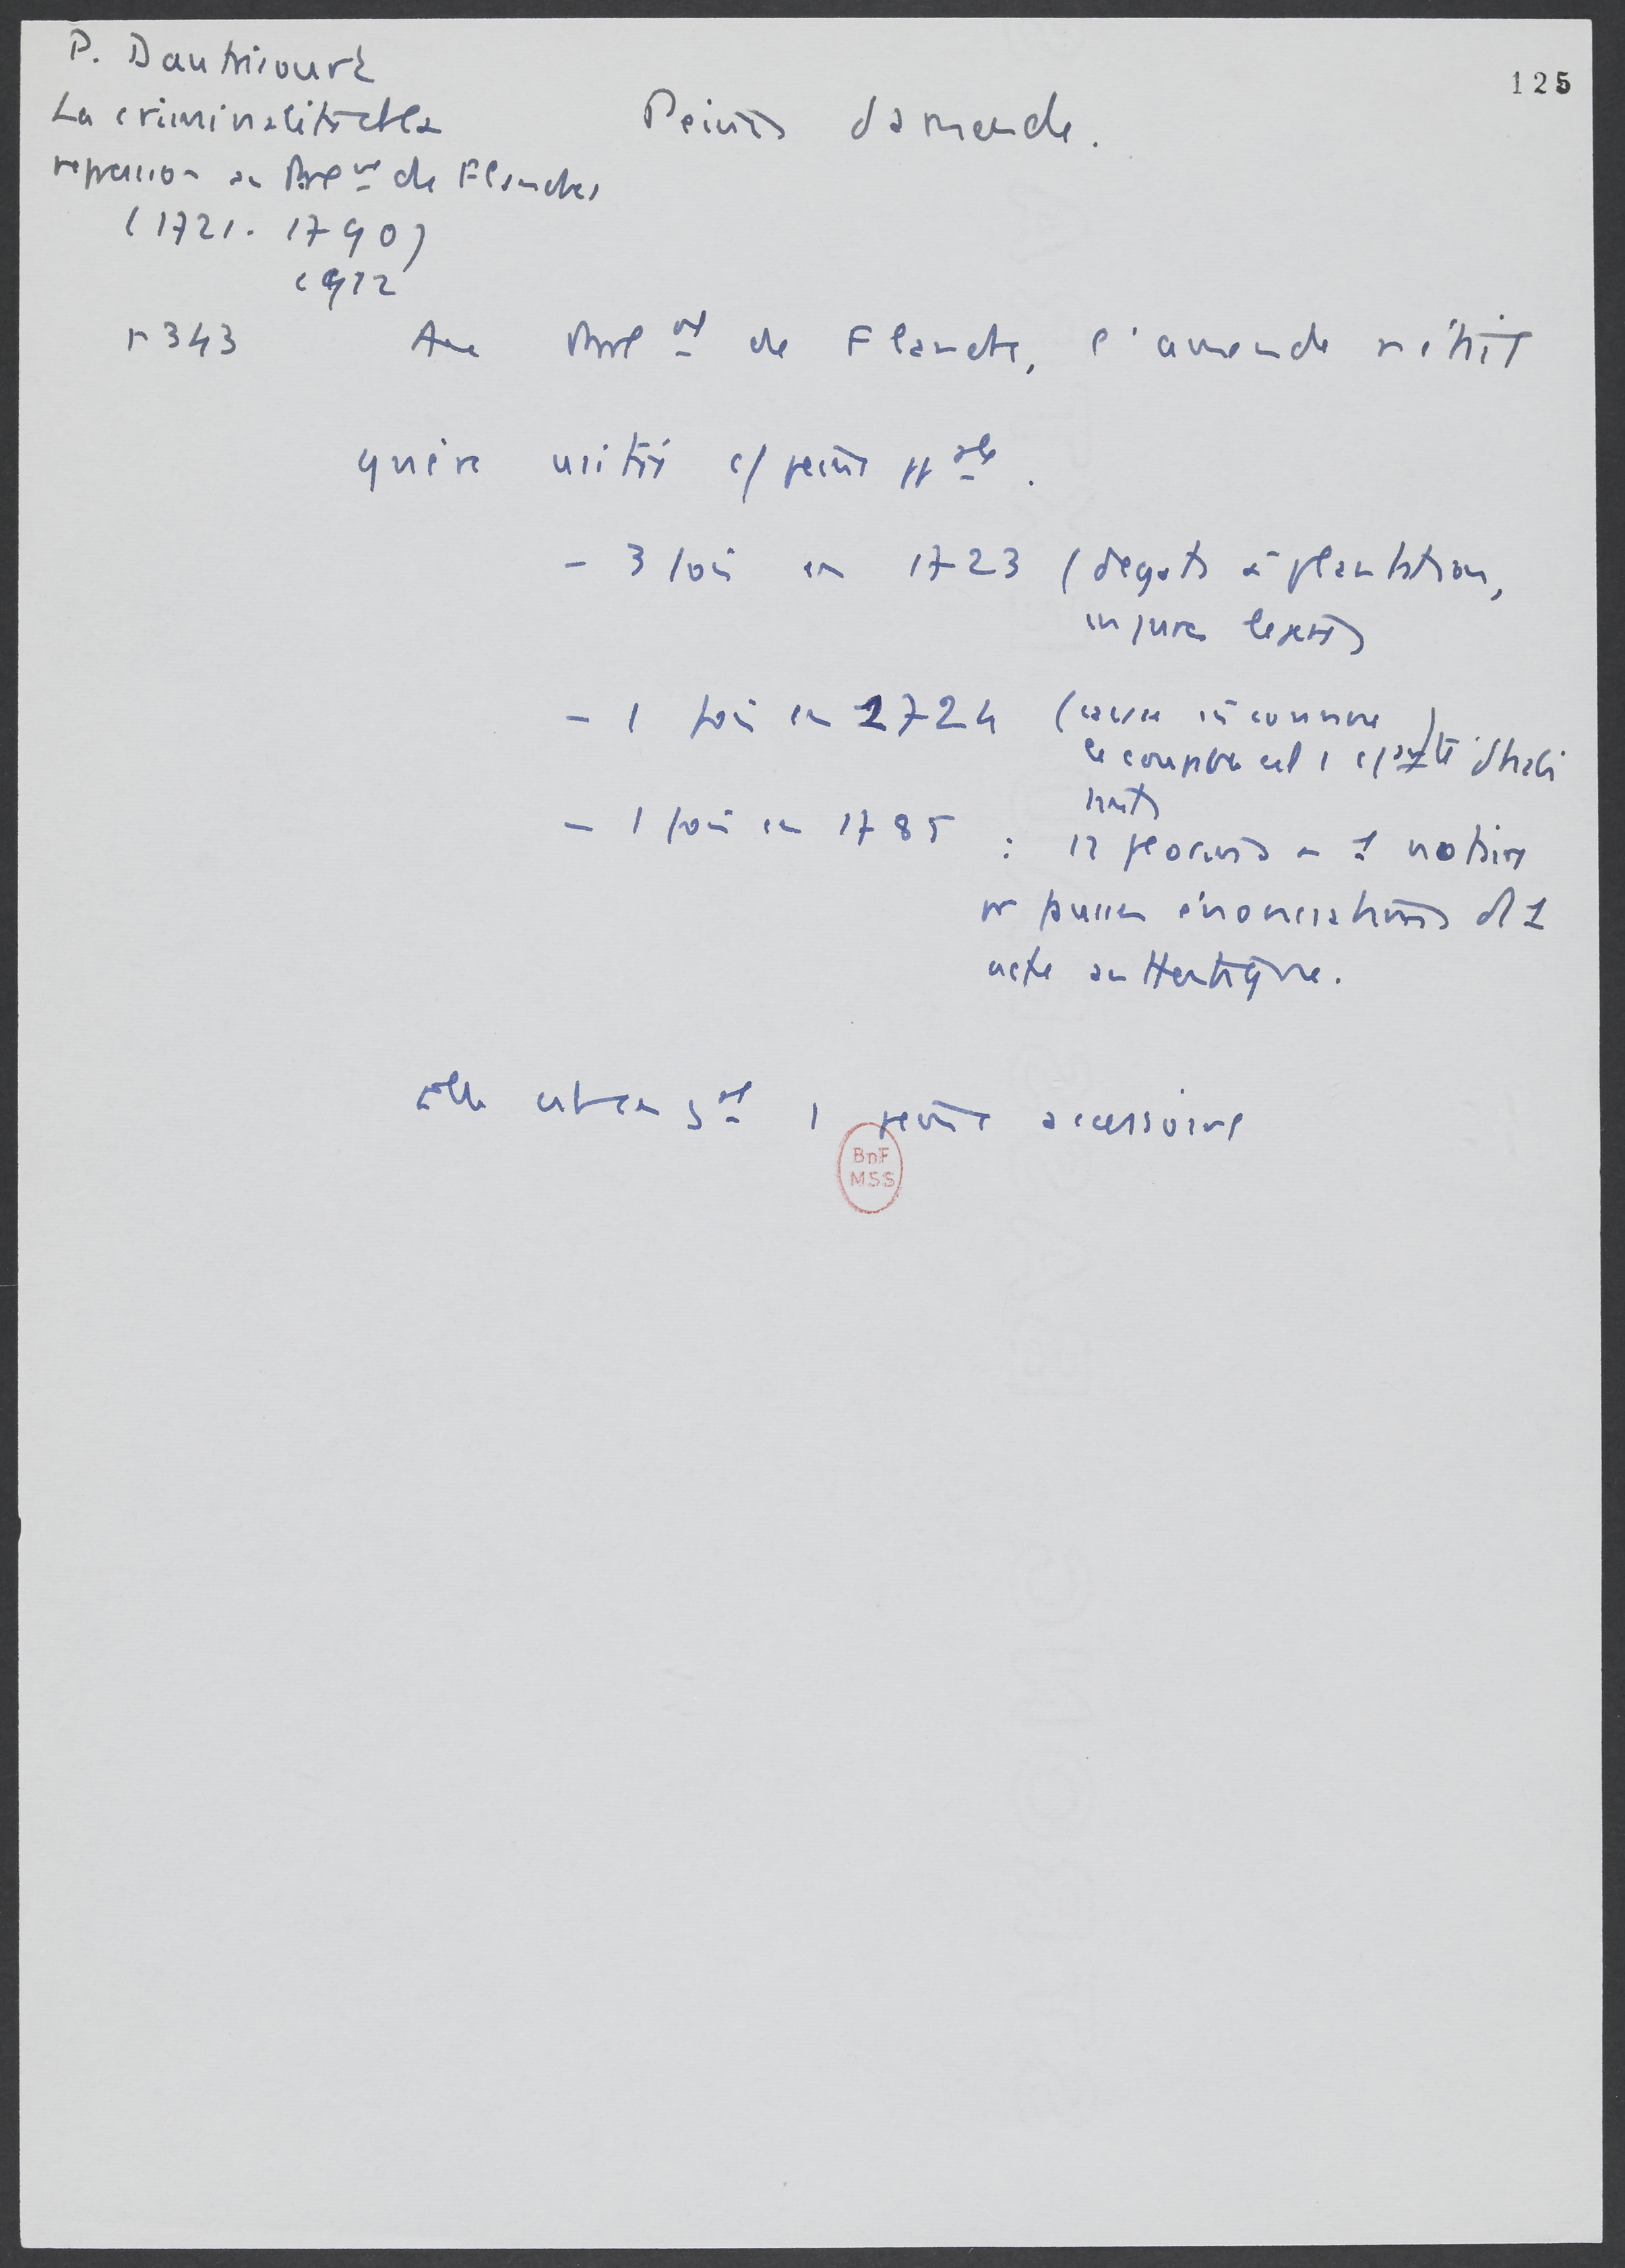 125
P. Dautricourt
La criminalité et la
repression au Parlt de Flandres
(1721. 1790)
1912
Peines d'amende.
p 343 Au Parlt de Flandre, l'amende n'était
guère usitée c/ peine ppale.
- 3 fois en 1723 (dégats à plantation,
injures legeres)
- 1 fois en 1724 (cause inconnue)
le coupable est 1 d'habi
tants
- 1 fois en 1785 : 12 florins a 1 notaire
pr fausses énonciations ds 1
acte authentique.
Elle est en gal 1 peine accessoire
BnF
MSS